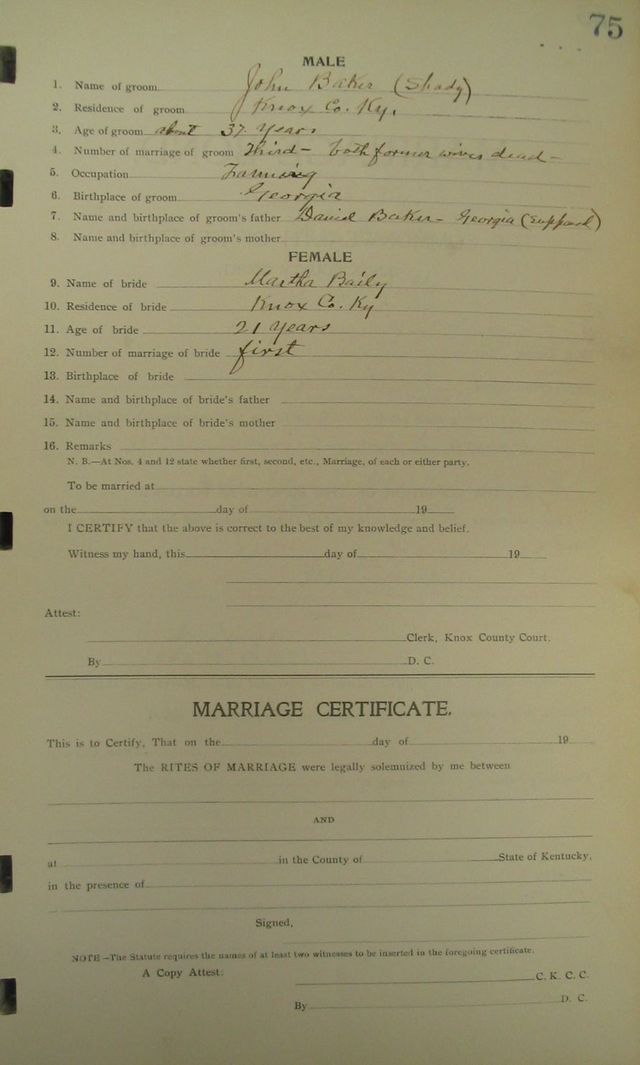 75
MALE
1. Name of groom John Baker (Shady)
2. Residence of groom Knox Co. Ky.
3. Age of groom about 37 Years
4. Number of marriage of groom Third - both former wives dead -
5. Occupation Farming
6. Birthplace of groom Georgia
7. Name and birthplace of groom's father David Baker - Georgia
8. Name and birthplace of groom's mother
FEMALE
9. Name of bride Martha Baily
10. Residence of bride Knox Co. Ky
11. Age of bride 21 Years
12. Number of marriage of bride first
13. Birthplace of bride
14. Name and birthplace of bride's father
15. Name and birthplace of bride's mother
16. Remarks
N. B.—At Nos. 4 and 12 state whether first, second, etc., Marriage, of each or either party.
To be married at
on the day of 19
I CERTIFY that the above is correct to the best of my knowledge and belief.
Witness my hand, this day of 19
Attest:
Clerk, Knox County Court.
By D. C.
MARRIAGE CERTIFICATE.
This is to Certify, That on the day of 19
The RITES OF MARRIAGE were legally solemnized by me between
AND
at in the County of State of Kentucky,
in the presence of
Signed,
NOTE—The Statute requires the names of at least two witnesses to be inserted in the foregoing certificate.
A Copy Attest: C. K. C. C.
By D. C.